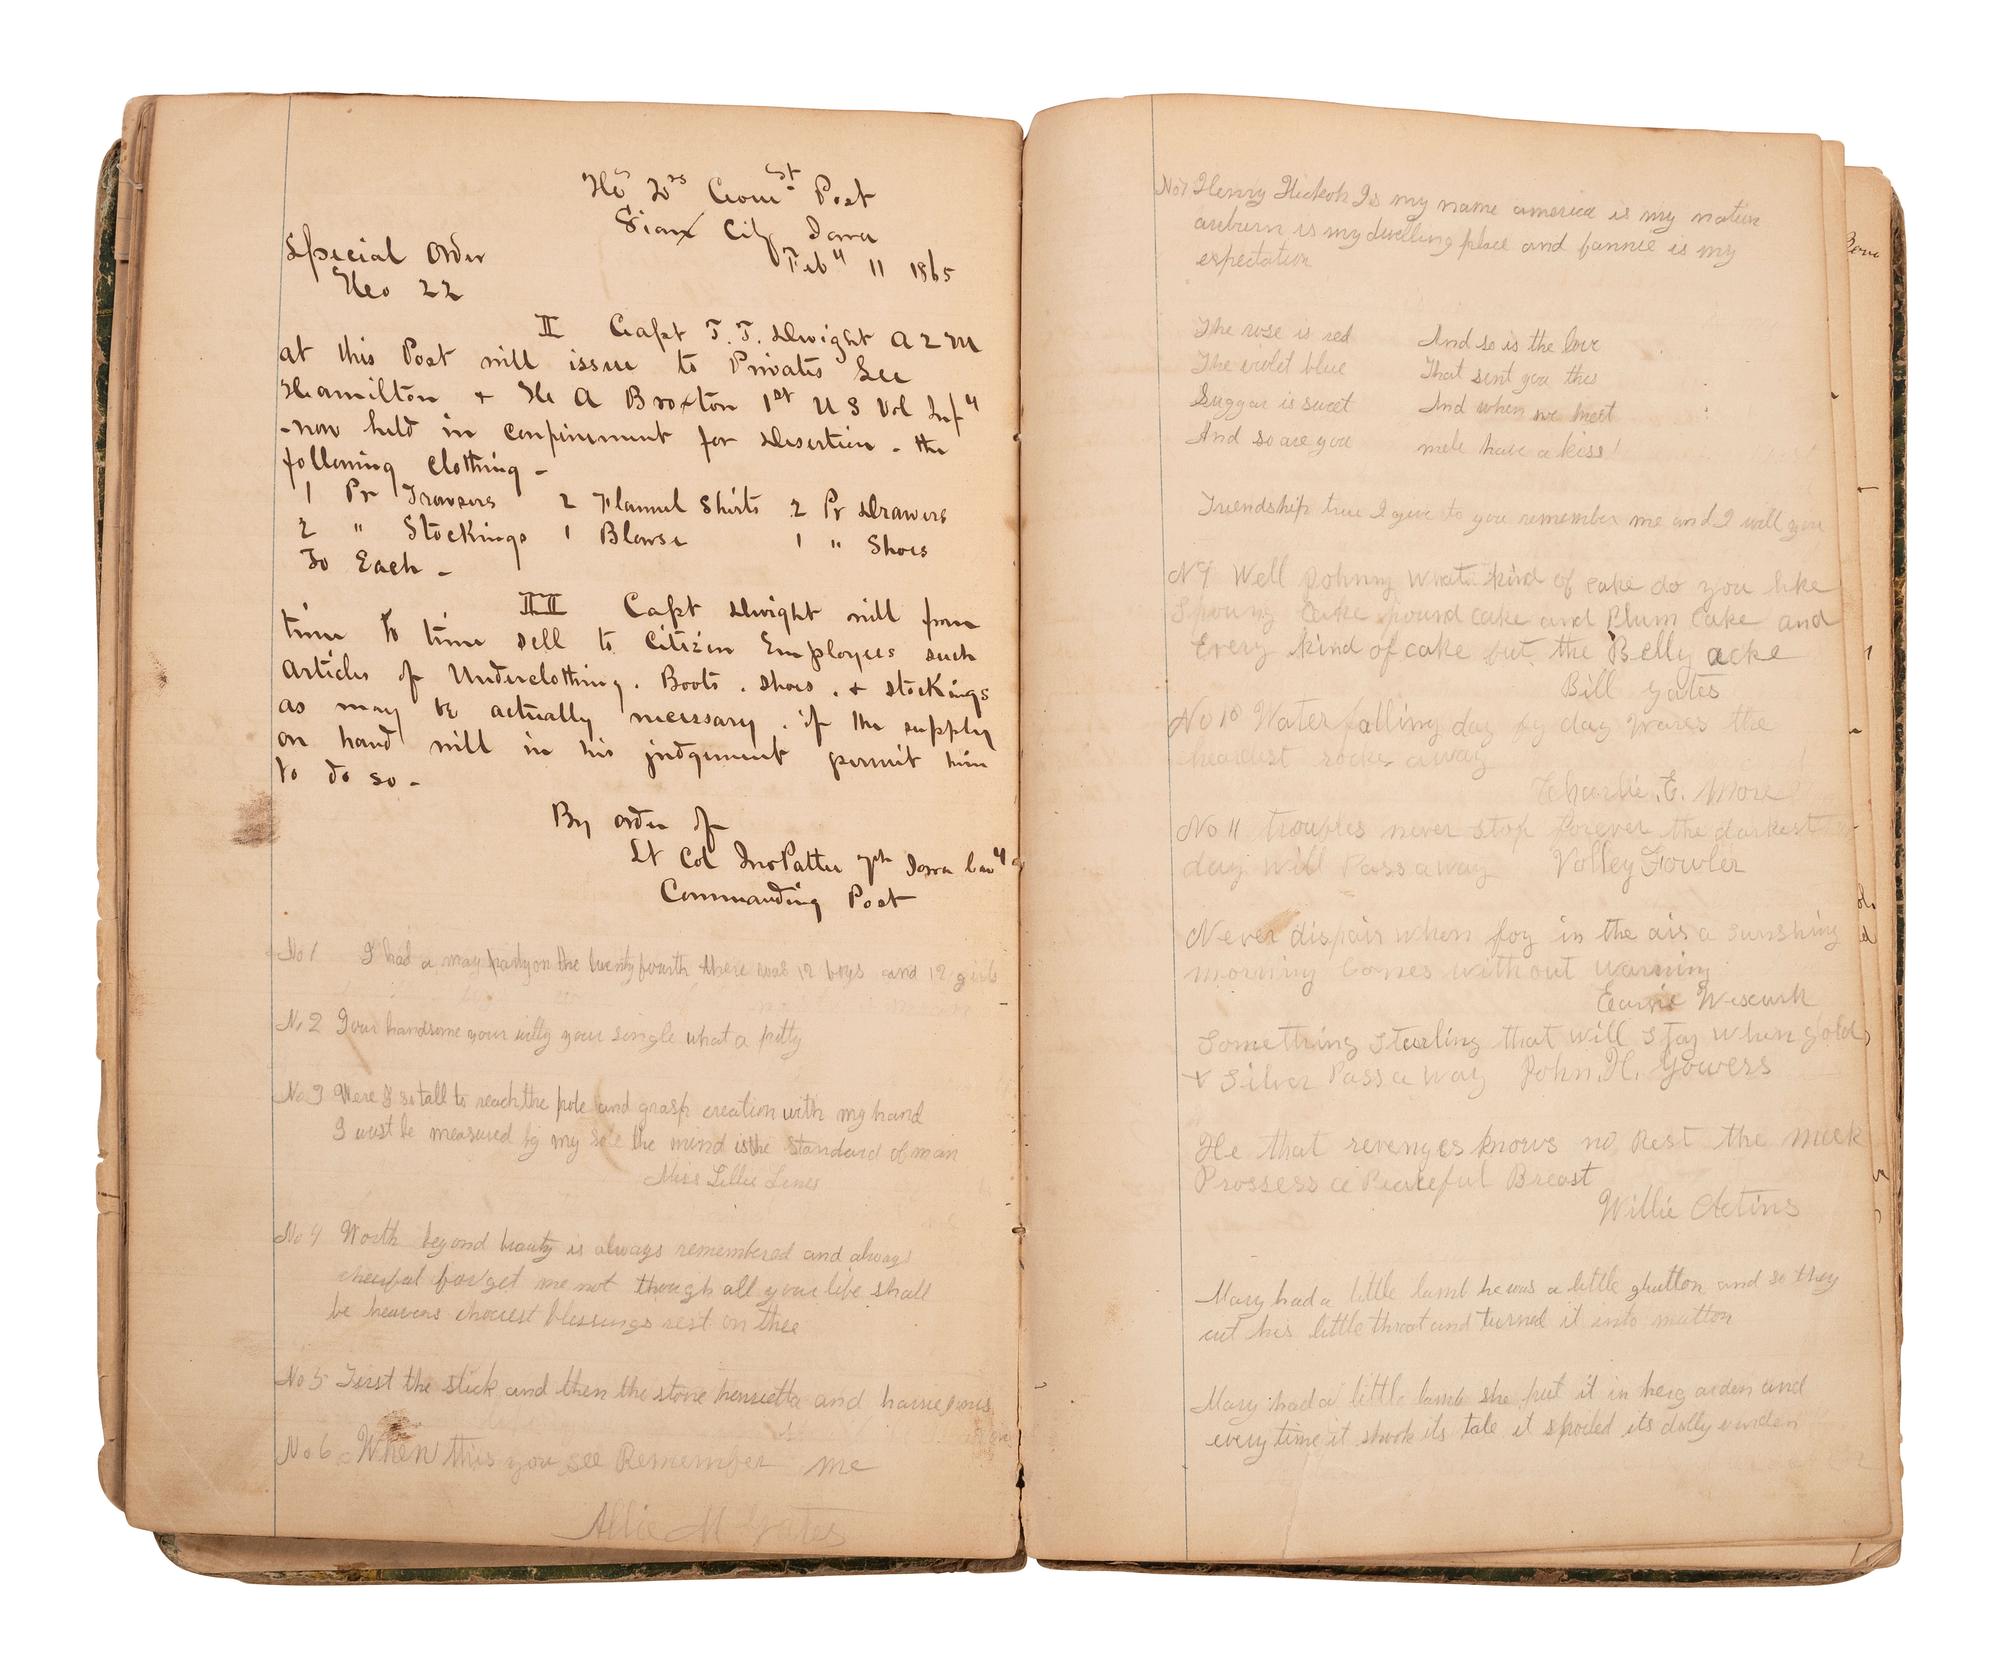 Hd Qrs Com St Post
Sioux City Iowa
Feby 11 1865
Special Order
No 22
II Capt T. T. Dwight A Q M
at this Post will issue to Privates Lee
Hamilton + H A Broxton 1st U S Vol Infy
- now held in confinement for desertion - the
following clothing -
1 Pr Trowsers 2 Flannel Shirts 2 Pr Drawers
2 " Stockings 1 Blouse 1 " Shoes
To Each -
III Capt Dwight will from
time to time sell to Citizen Employees such
articles of Underclothing. Boots. shoes. + stockings
as may be actually necessary. if the supply
on hand will in his judgement permit him
to do so -
By order of
Lt Col Jno Pattee 7th Iowa Cavy
Commanding Post
No 1 I had a may party on the twenty fourth there was 12 boys and 12 girls
No 2 Your handsome your witty your single what a pitty
No 3 Were I so tall to reach the pole and grasp creation with my hand
I must be measured by my sole the mind is the standard of man
Miss Lillie Lines
No 4 Worth beyond beauty is always remembered and always
cheerful forget me not though all your life shall
be heavens choicest blessings rest on thee
No 5 First the stick and then the stone henrietta and harrie
No 6 When this you see Remember me
Allie M Yates
No 7 Henry Hickoh Is my name america is my nation
auburn is my dwelling place and fannie is my
expectation
The rose is red And so is the love
The violet blue That sent you this
Suggar is sweet And when we meet
And so are you have a kiss!
Friendship true I give to you remember me and I will you
N 9 Well Johnny what kind of cake do you like
Spoung Cake pound cake and Plum Cake and
Every kind of cake but the Belly acke
Bill Yates
No 10 Water falling day by day wares the
heardest rocke away
Charlie E. More
No 11 troubles never stop forever the darkest
day will Pass away Volley Fowler
Never dispair when fog in the air a sunshing
morning Comes without warning
Something Sterling that will Stay when gold
+ Silver Pass a way John. H. Yowers
He that revenges knows no Rest the meek
Prossess a Peaceful Breast
Willie
Mary had a little lamb he was a little glutton and so they
cut his little throat and turned it into mutton
Mary had a little lamb she put it in her garden and
every time it shook its tale it spoiled its dolly varden